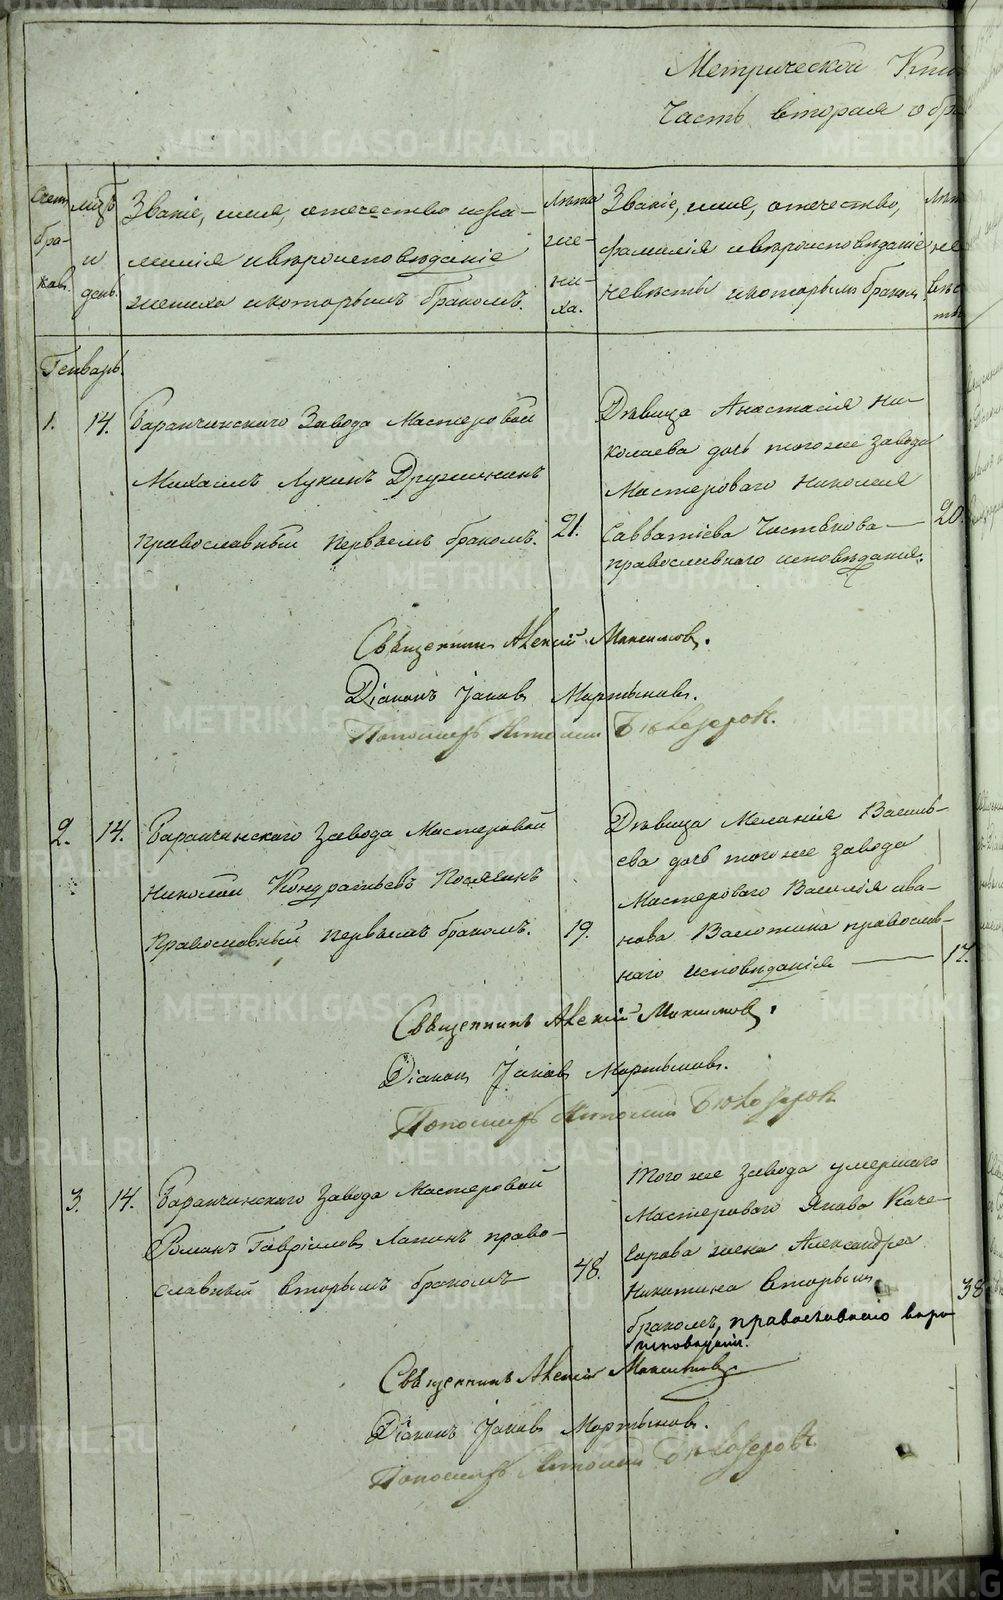 Метрической Кни
Часть вторая о бра
Счетъ бра- ковъ.
мцъ и день.
Званіе, имя, отечество и фа-
милія и вѣроисповѣданіе
жениха и которымъ бракомъ.
Лѣта же- ни- ха.
Званіе, имя, отечество,
фамилія и вѣроисповѣданіе
невѣсты и которымъ бракомъ
Лѣт не вѣс ты
Генварь.
1. 14. Баранчинскаго Завода Мастеровой
Михаилъ Лукинъ Дружининъ
православный первымъ бракомъ. 21.
Дѣвица Анастасія Ни-
колаева дочь того же завода
Мастероваго Николая
Савватіева Частѣкова — 20.
православнаго исповѣданія.
Священникъ Алексій Максимовъ.
Діаконъ Іаковъ Мартыновъ.
2. 14. Баранчинскаго Завода Мастеровой
Николай Кондратьевъ Посягинъ
Православный первымъ бракомъ. 19.
Дѣвица Меланія Василь-
ева дочь того же завода
Мастероваго Василія Ива-
нова Ваготина православ-
наго исповѣданія — 17.
Священникъ Алексій Максимовъ.
Діаконъ Іаковъ Мартыновъ.
3. 14. Баранчинскаго Завода Мастеровой
Романъ Гавріиловъ Лапинъ право-
славный вторымъ бракомъ 48.
Того же завода умершаго
Мастероваго Якова Каче-
гарова жена Александра
Никитина вторымъ 38
бракомъ, православнаго веро
исповѣданія.
Священникъ Алексій Максимовъ
Діаконъ Іаковъ Мартыновъ.
METRIKI.GASO-URAL.RU